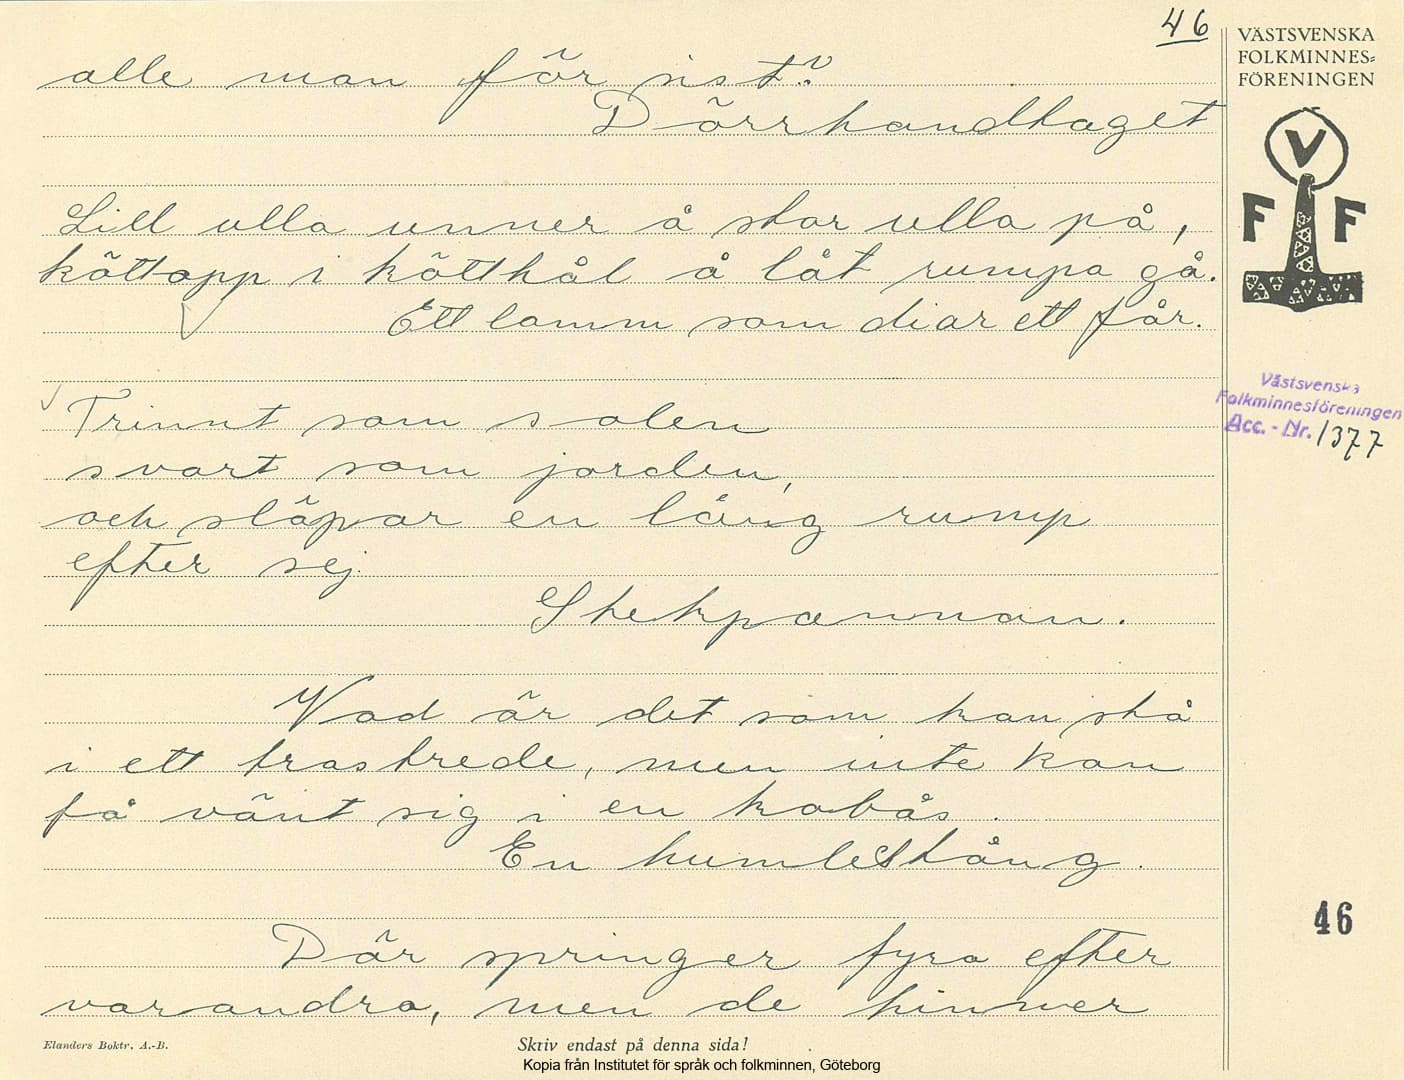 46
VÄSTSVENSKA
FOLKMINNES=
FÖRENINGEN
alle man för sist?
Dörrhandtaget
V
F F
Lill ulla unner å stor ulla på,
köttopp i kötthål å låt rumpa gå.
Ett lamm som diar ett får.
Västsvenska
Folkminnesföreningen
Acc. - Nr. 1377
Trinnt som solen
svart som jorden,
och släpar en lång rump
efter sej.
Stekpannan.
Vad är det som kan stå
i ett trastrede, men inte kan
få vänt sig i en kobås.
En humlestång.
46
Där springer fyra efter
varandra, men de hinner
Elanders Boktr. A.-B.
Skriv endast på denna sida!
Kopia från Institutet för språk och folkminnen, Göteborg